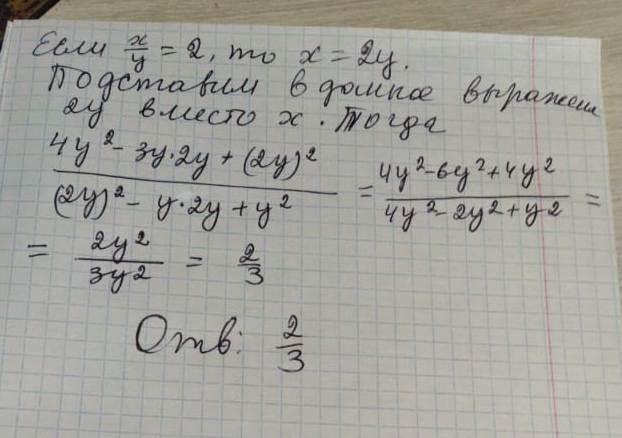 Если x/y = 2, то x = 2y.
Подставим в данное выражен
2y вместо x. Тогда
(4y² - 3y·2y + (2y)²)/((2y)² - y·2y + y²) = (4y² - 6y² + 4y²)/(4y² - 2y² + y²) =
= 2y²/3y² = 2/3
Отв: 2/3